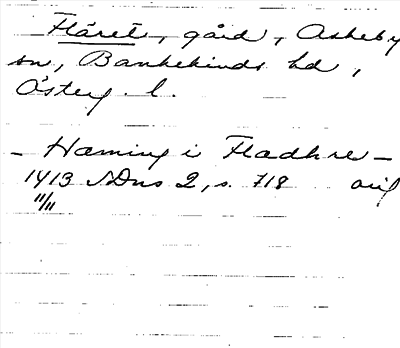 Fläret, gård, Askeby
sn, Bankekinds hd,
Österg. l.
– Hæming i Fladhre –
1413 SDns 2, s. 718 orig
11/11